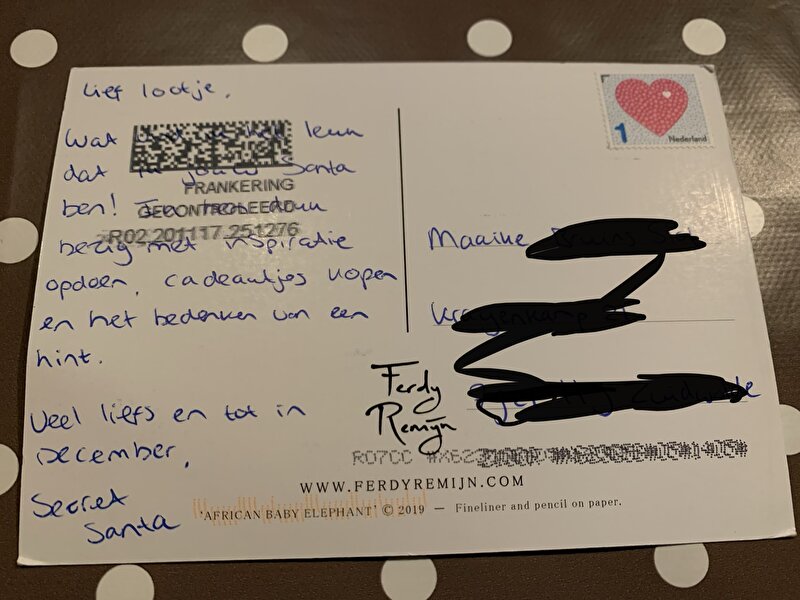 Lief lootje,
Wat vind ik het leuk
dat ik jouw Santa
ben! Ik ben druk
bezig met inspiratie
opdoen, cadeautjes kopen
en het bedenken van een
hint.
Veel liefs en tot in
December,
Secret
Santa
FRANKERING
GECONTROLEERD
R02 201117 251276
1
Nederland
Maaike
Ferdy
Remijn
R07CC #X62
WWW.FERDYREMIJN.COM
'AFRICAN BABY ELEPHANT' © 2019 — Fineliner and pencil on paper.